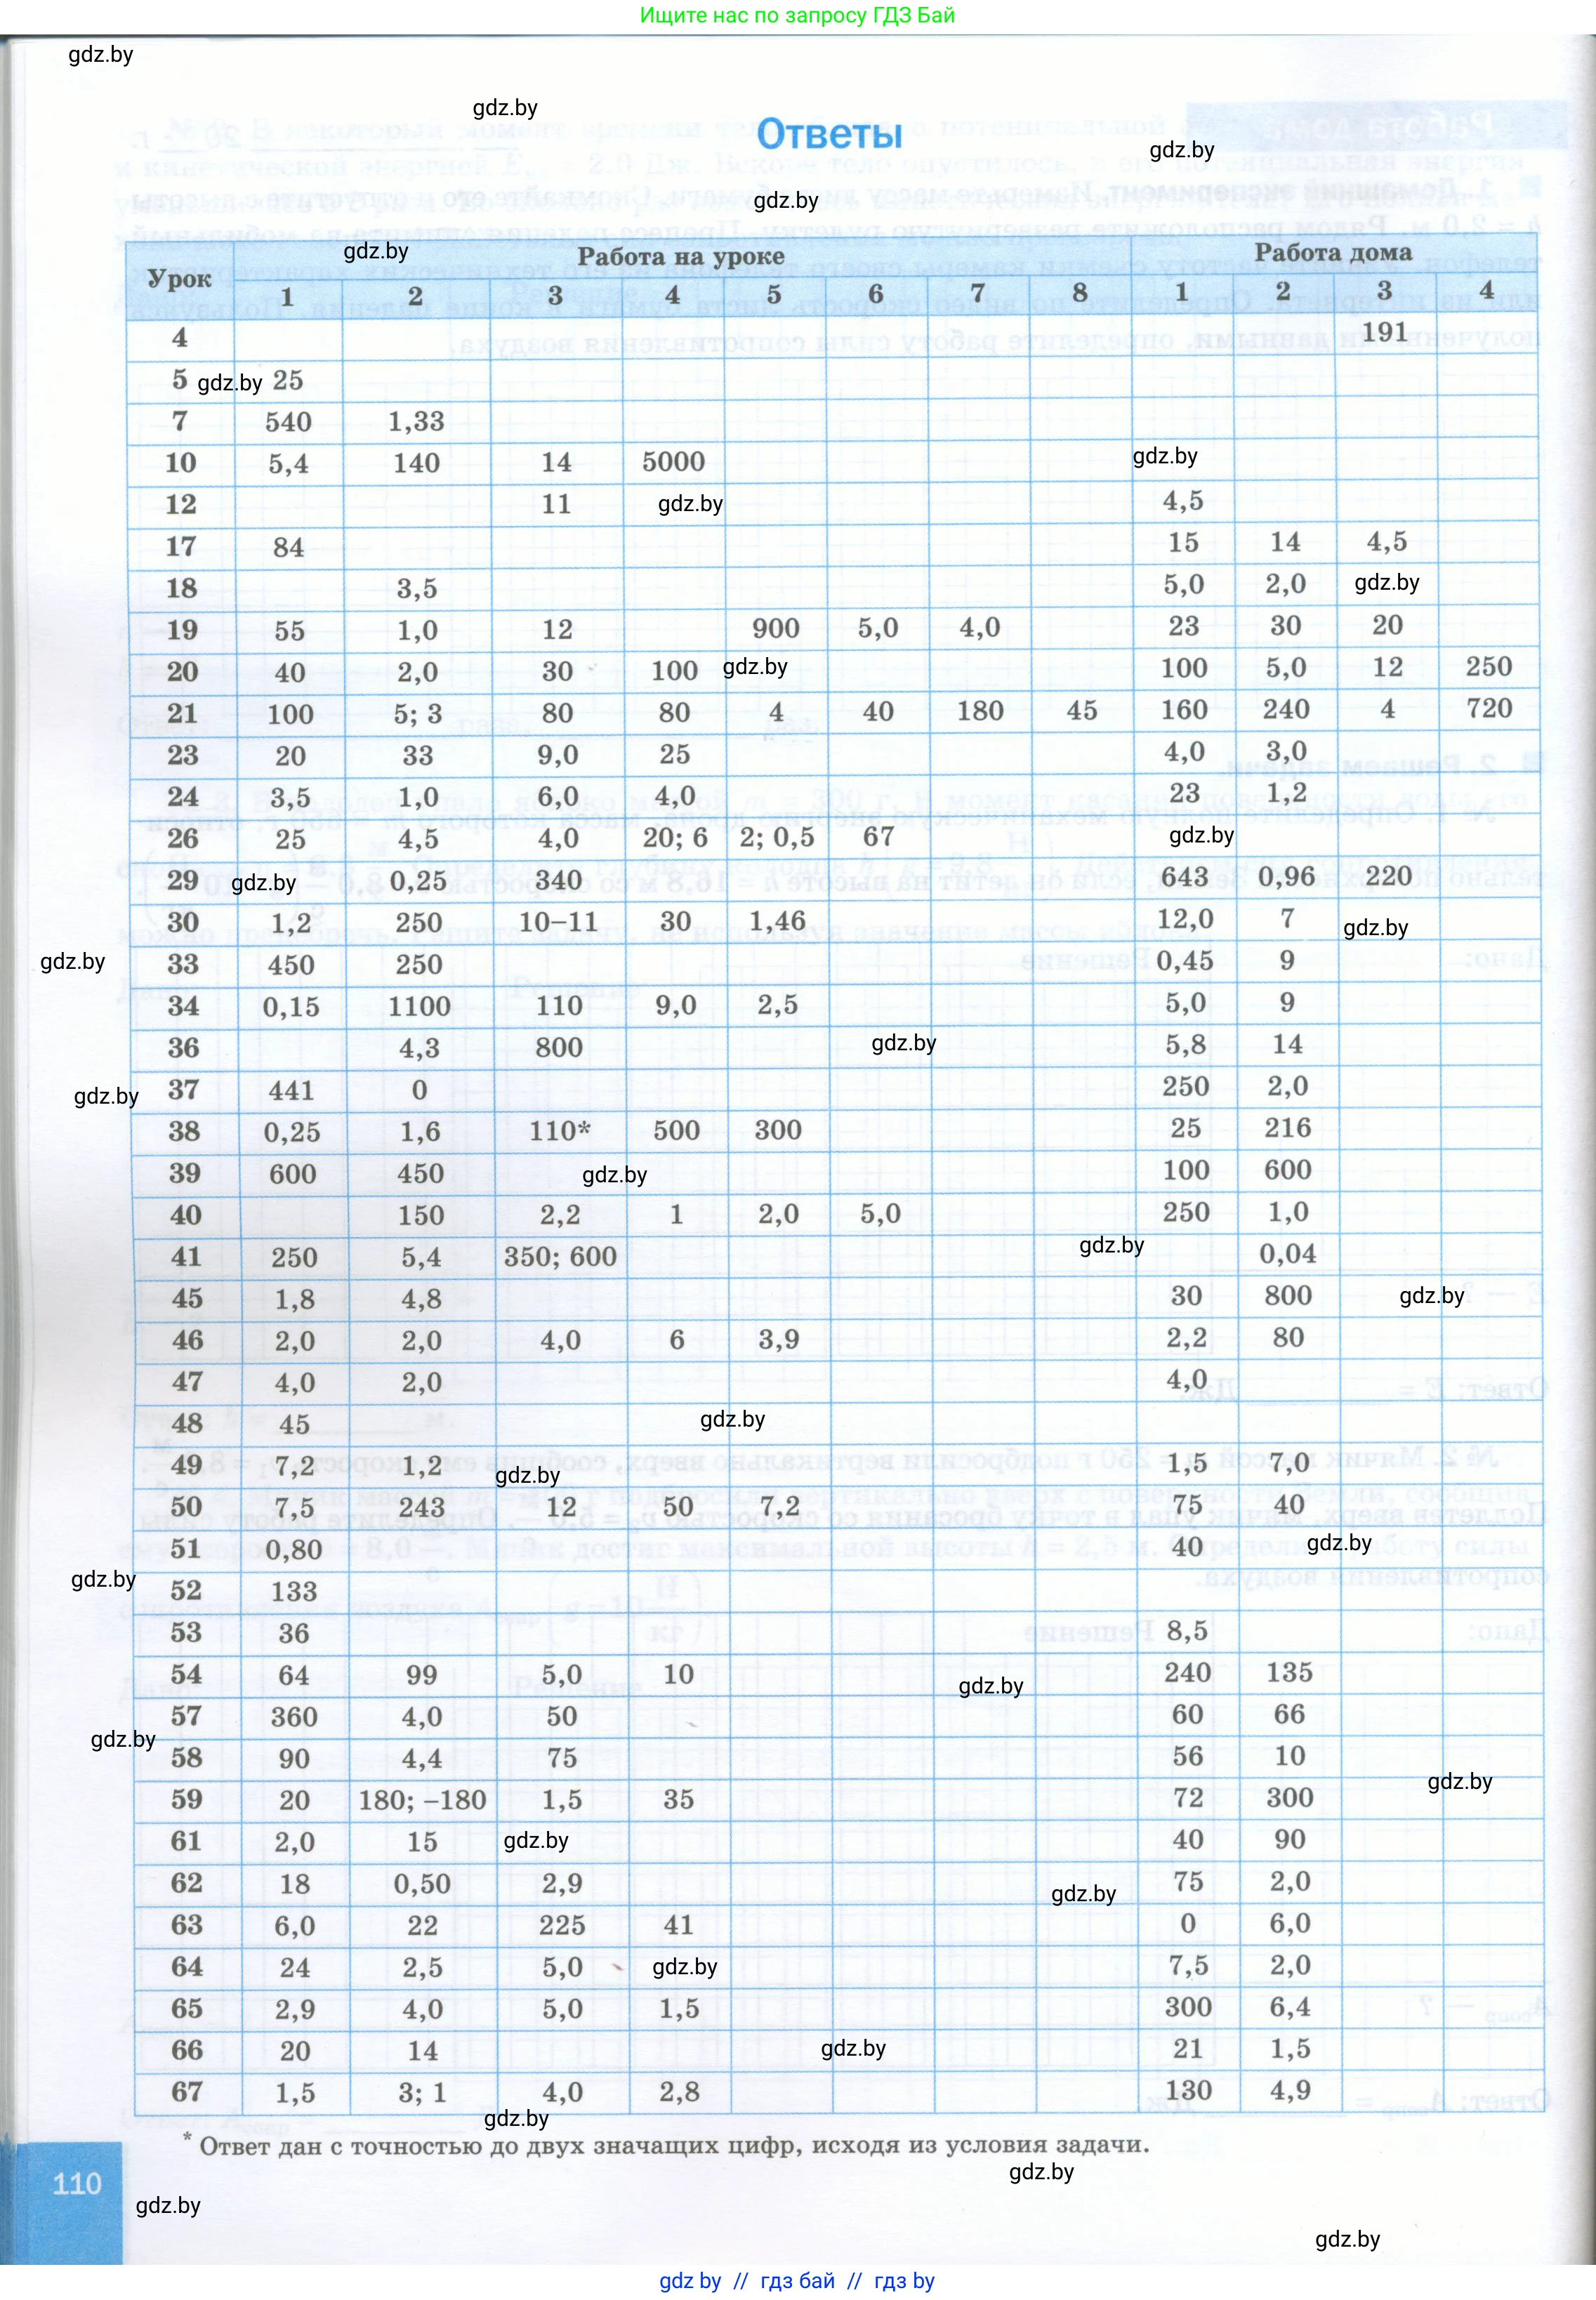 Ищите нас по запросу ГДЗ Бай
gdz.by
gdz.by
Ответы
gdz.by
gdz.by
gdz.by
Урок Работа на уроке Работа дома
1 2 3 4 5 6 7 8 1 2 3 4
4 191
5 gdz.by 25
7 540 1,33
10 5,4 140 14 5000 gdz.by
12 11 gdz.by 4,5
17 84 15 14 4,5
18 3,5 5,0 2,0 gdz.by
19 55 1,0 12 900 5,0 4,0 23 30 20
20 40 2,0 30 100 gdz.by 100 5,0 12 250
21 100 5; 3 80 80 4 40 180 45 160 240 4 720
23 20 33 9,0 25 4,0 3,0
24 3,5 1,0 6,0 4,0 23 1,2
26 25 4,5 4,0 20; 6 2; 0,5 67 gdz.by
29 gdz.by 0,25 340 643 0,96 220
30 1,2 250 10–11 30 1,46 12,0 7 gdz.by
gdz.by 33 450 250 0,45 9
34 0,15 1100 110 9,0 2,5 5,0 9
36 4,3 800 gdz.by 5,8 14
gdz.by 37 441 0 250 2,0
38 0,25 1,6 110* 500 300 25 216
39 600 450 gdz.by 100 600
40 150 2,2 1 2,0 5,0 250 1,0
41 250 5,4 350; 600 gdz.by 0,04
45 1,8 4,8 30 800 gdz.by
46 2,0 2,0 4,0 6 3,9 2,2 80
47 4,0 2,0 4,0
48 45 gdz.by
49 7,2 1,2 gdz.by 1,5 7,0
50 7,5 243 12 50 7,2 75 40
51 0,80 40 gdz.by
gdz.by 52 133
53 36 8,5
54 64 99 5,0 10 gdz.by 240 135
57 360 4,0 50 60 66
gdz.by 58 90 4,4 75 56 10
59 20 180; –180 1,5 35 72 300 gdz.by
61 2,0 15 gdz.by 40 90
62 18 0,50 2,9 gdz.by 75 2,0
63 6,0 22 225 41 0 6,0
64 24 2,5 5,0 gdz.by 7,5 2,0
65 2,9 4,0 5,0 1,5 300 6,4
66 20 14 gdz.by 21 1,5
67 1,5 3; 1 4,0 2,8 130 4,9
gdz.by
* Ответ дан с точностью до двух значащих цифр, исходя из условия задачи.
gdz.by
110
gdz.by
gdz.by
gdz by // гдз бай // гдз by